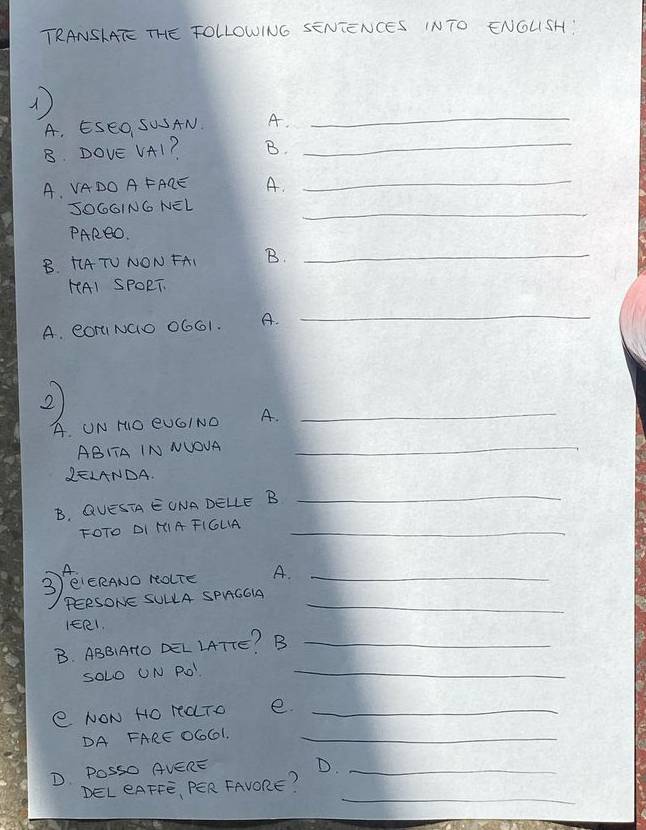 TRANSLATE THE FOLLOWING SENTENCES INTO ENGLISH:
1)
A. ESCO, SUSAN. A.
B. DOVE VAI? B.
A. VADO A FARE A.
JOGGING NEL
PARCO.
B. MA TU NON FAI B.
MAI SPORT.
A. COMINCIO OGGI. A.
2)
A. UN MIO CUGINO A.
ABITA IN NUOVA
ZELANDA.
B. QUESTA È UNA DELLE B
FOTO DI MIA FIGLIA
3) A. C'ERANO MOLTE A.
PERSONE SULLA SPIAGGIA
IERI.
B. ABBIAMO DEL LATTE? B
SOLO UN PO'.
C NON HO MOLTO C.
DA FARE OGGI.
D. POSSO AVERE D.
DEL CAFFÈ, PER FAVORE?